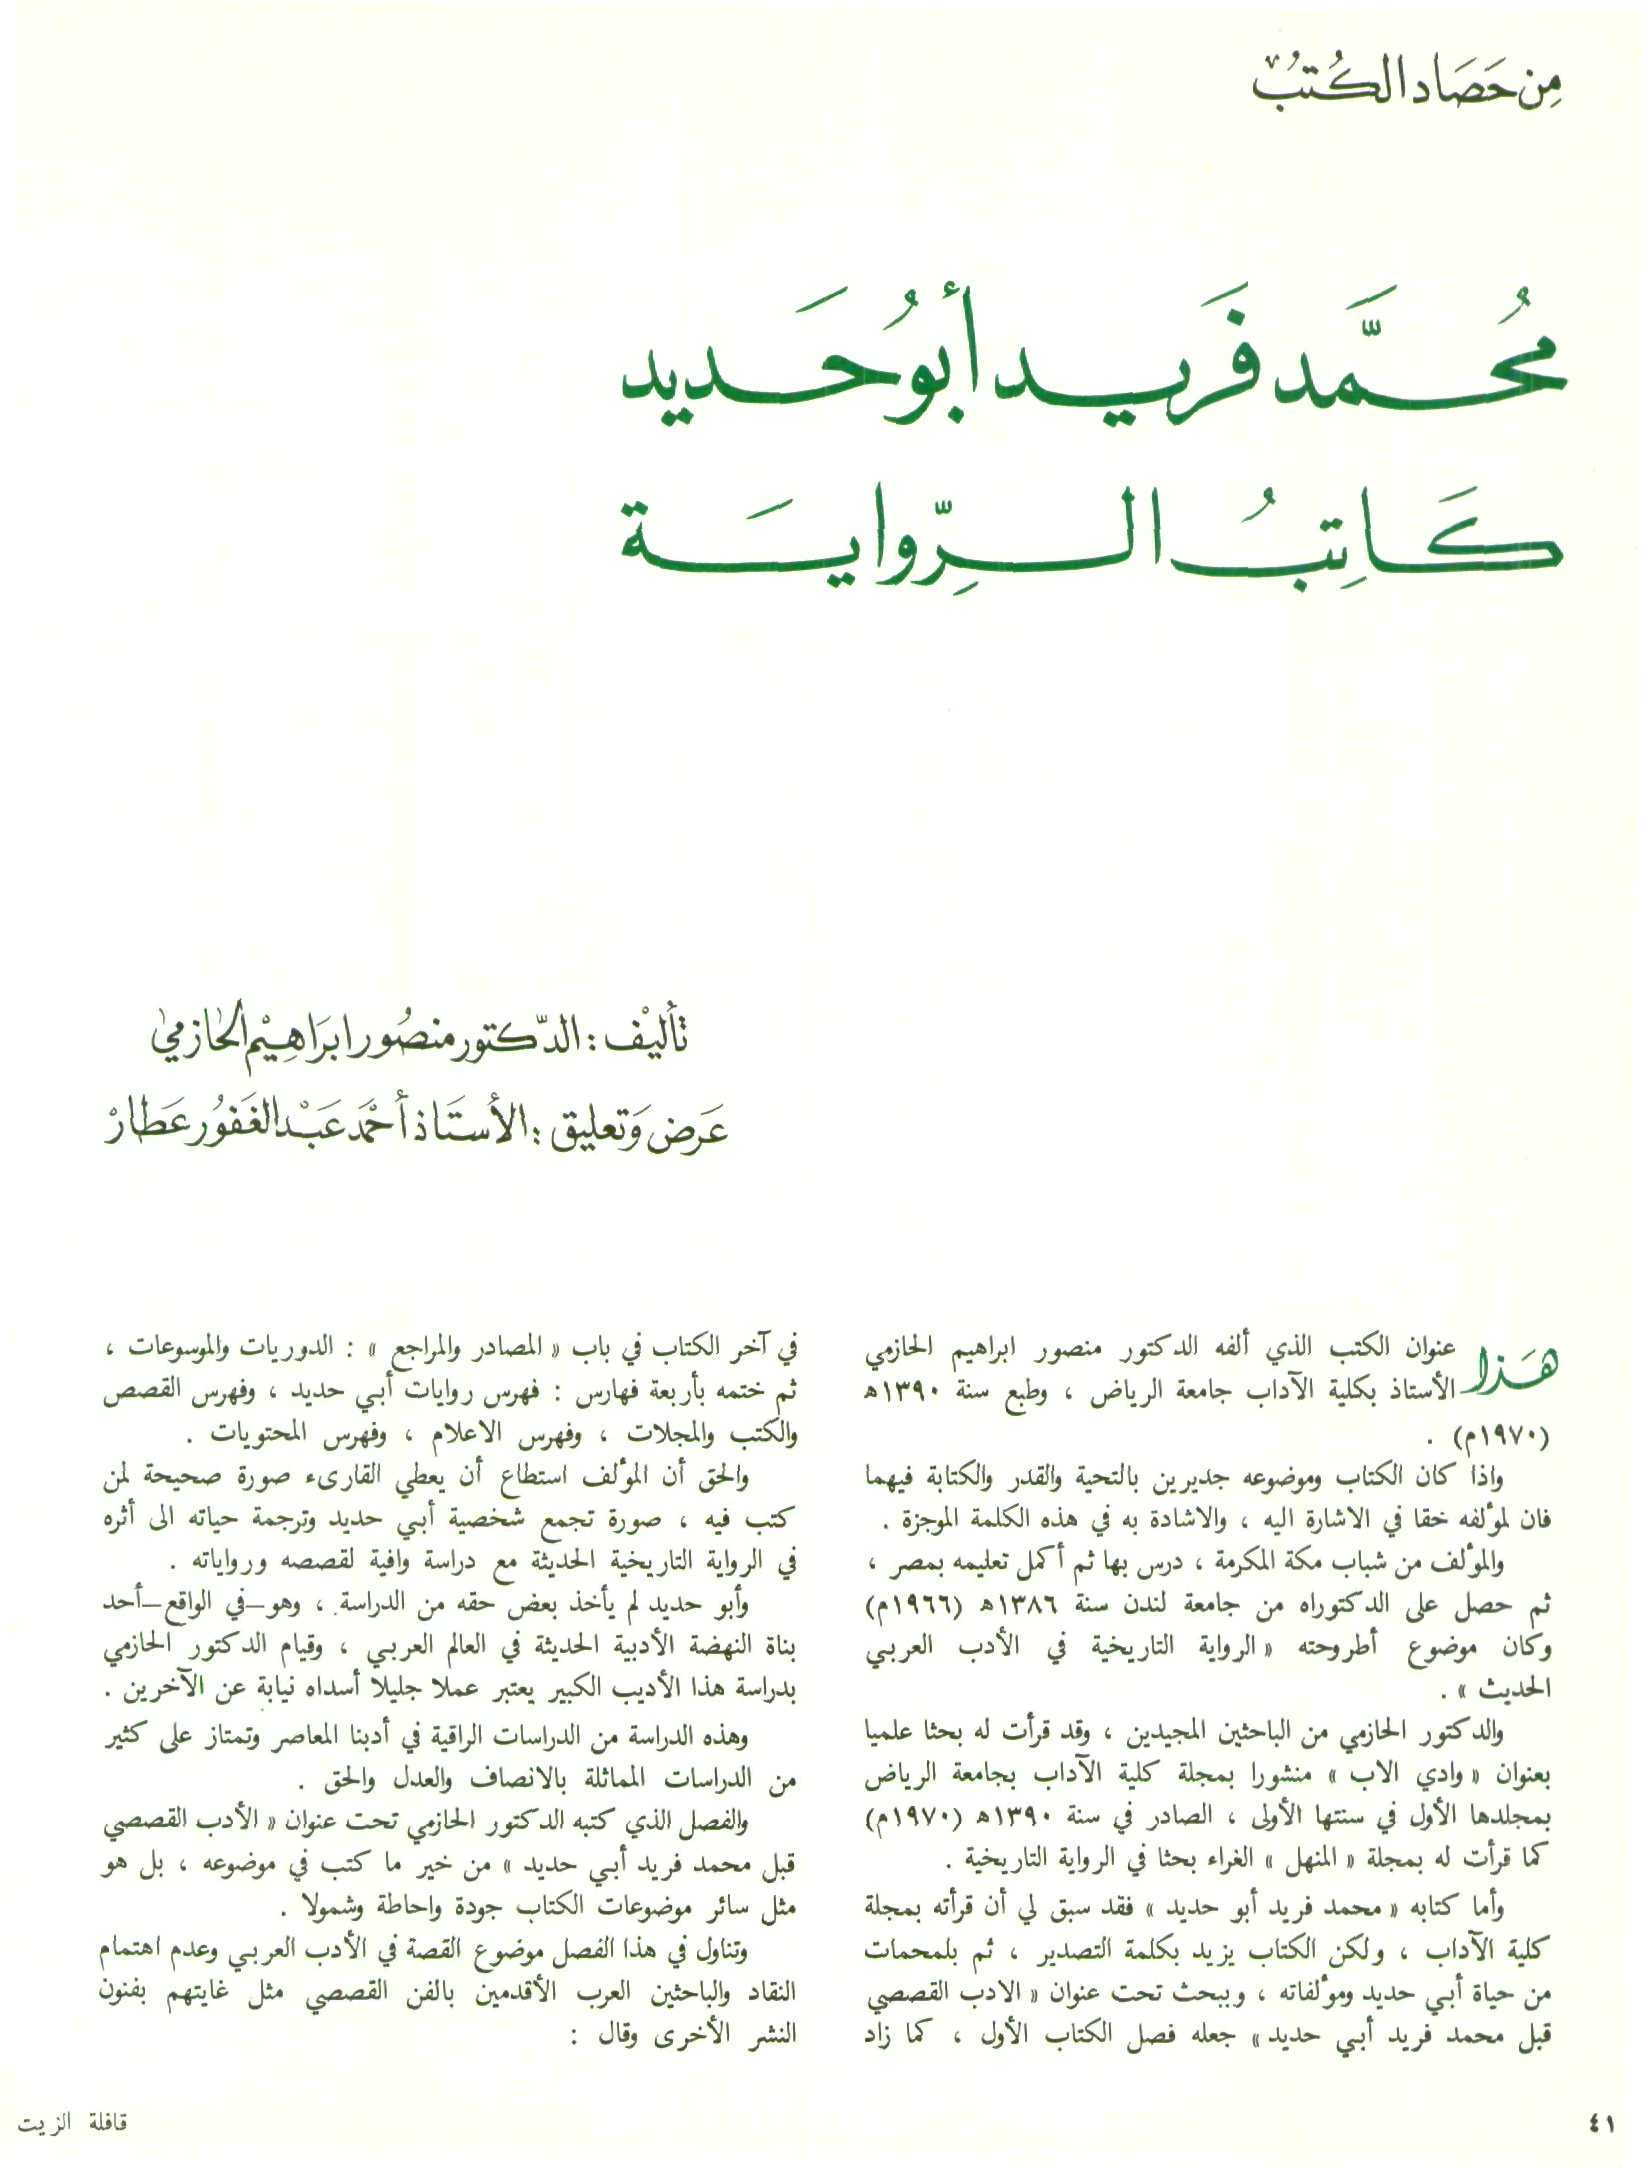 من حصاد الكتب
محمد فريد أبو حديد
كاتب الرواية
تأليف : الدكتور منصور ابراهيم الحازمي
عرض وتعليق : الأستاذ أحمد عبد الغفور عطار
هذا عنوان الكتب الذي ألفه الدكتور منصور ابراهيم الحازمي
الأستاذ بكلية الآداب جامعة الرياض ، وطبع سنة ١٣٩٠ه
(١٩٧٠م) .
واذا كان الكتاب وموضوعه جديرين بالتحية والقدر والكتابة فيهما
فان لمؤلفه خقا في الاشارة اليه ، والاشادة به في هذه الكلمة الموجزة .
والمؤلف من شباب مكة المكرمة ، درس بها ثم أكمل تعليمه بمصر ،
ثم حصل على الدكتوراه من جامعة لندن سنة ١٣٨٦ه (١٩٦٦م)
وكان موضوع أطروحته « الرواية التاريخية في الأدب العربي
الحديث » .
والدكتور الحازمي من الباحثين المجيدين ، وقد قرأت له بحثا علميا
بعنوان « وادي الاب » منشورا بمجلة كلية الآداب بجامعة الرياض
بمجلدها الأول في سنتها الأولى ، الصادر في سنة ١٣٩٠ه (١٩٧٠م)
كما قرأت له بمجلة « المنهل » الغراء بحثا في الرواية التاريخية .
وأما كتابه « محمد فريد أبو حديد » فقد سبق لي أن قرأته بمجلة
كلية الآداب ، ولكن الكتاب يزيد بكلمة التصدير ، ثم بلمحمات
من حياة أبي حديد ومؤلفاته ، وببحث تحت عنوان « الادب القصصي
قبل محمد فريد أبي حديد » جعله فصل الكتاب الأول ، كما زاد
في آخر الكتاب في باب « المصادر والمراجع » : الدوريات والموسوعات ،
ثم ختمه بأربعة فهارس : فهرس روايات أبي حديد ، وفهرس القصص
والكتب والمجلات ، وفهرس الاعلام ، وفهرس المحتويات .
والحق أن المؤلف استطاع أن يعطي القارىء صورة صحيحة لمن
كتب فيه ، صورة تجمع شخصية أبي حديد وترجمة حياته الى أثره
في الرواية التاريخية الحديثة مع دراسة وافية لقصصه ورواياته .
وأبو حديد لم يأخذ بعض حقه من الدراسة ، وهو—في الواقع—أحد
بناة النهضة الأدبية الحديثة في العالم العربي ، وقيام الدكتور الحازمي
بدراسة هذا الأديب الكبير يعتبر عملا جليلا أسداه نيابة عن الآخرين .
وهذه الدراسة من الدراسات الراقية في أدبنا المعاصر وتمتاز على كثير
من الدراسات المماثلة بالانصاف والعدل والحق .
والفصل الذي كتبه الدكتور الحازمي تحت عنوان « الأدب القصصي
قبل محمد فريد أبي حديد » من خير ما كتب في موضوعه ، بل هو
مثل سائر موضوعات الكتاب جودة واحاطة وشمولا .
وتناول في هذا الفصل موضوع القصة في الأدب العربي وعدم اهتمام
النقاد والباحثين العرب الأقدمين بالفن القصصي مثل غايتهم بفنون
النشر الأخرى وقال :
٤١
قافلة الزيت